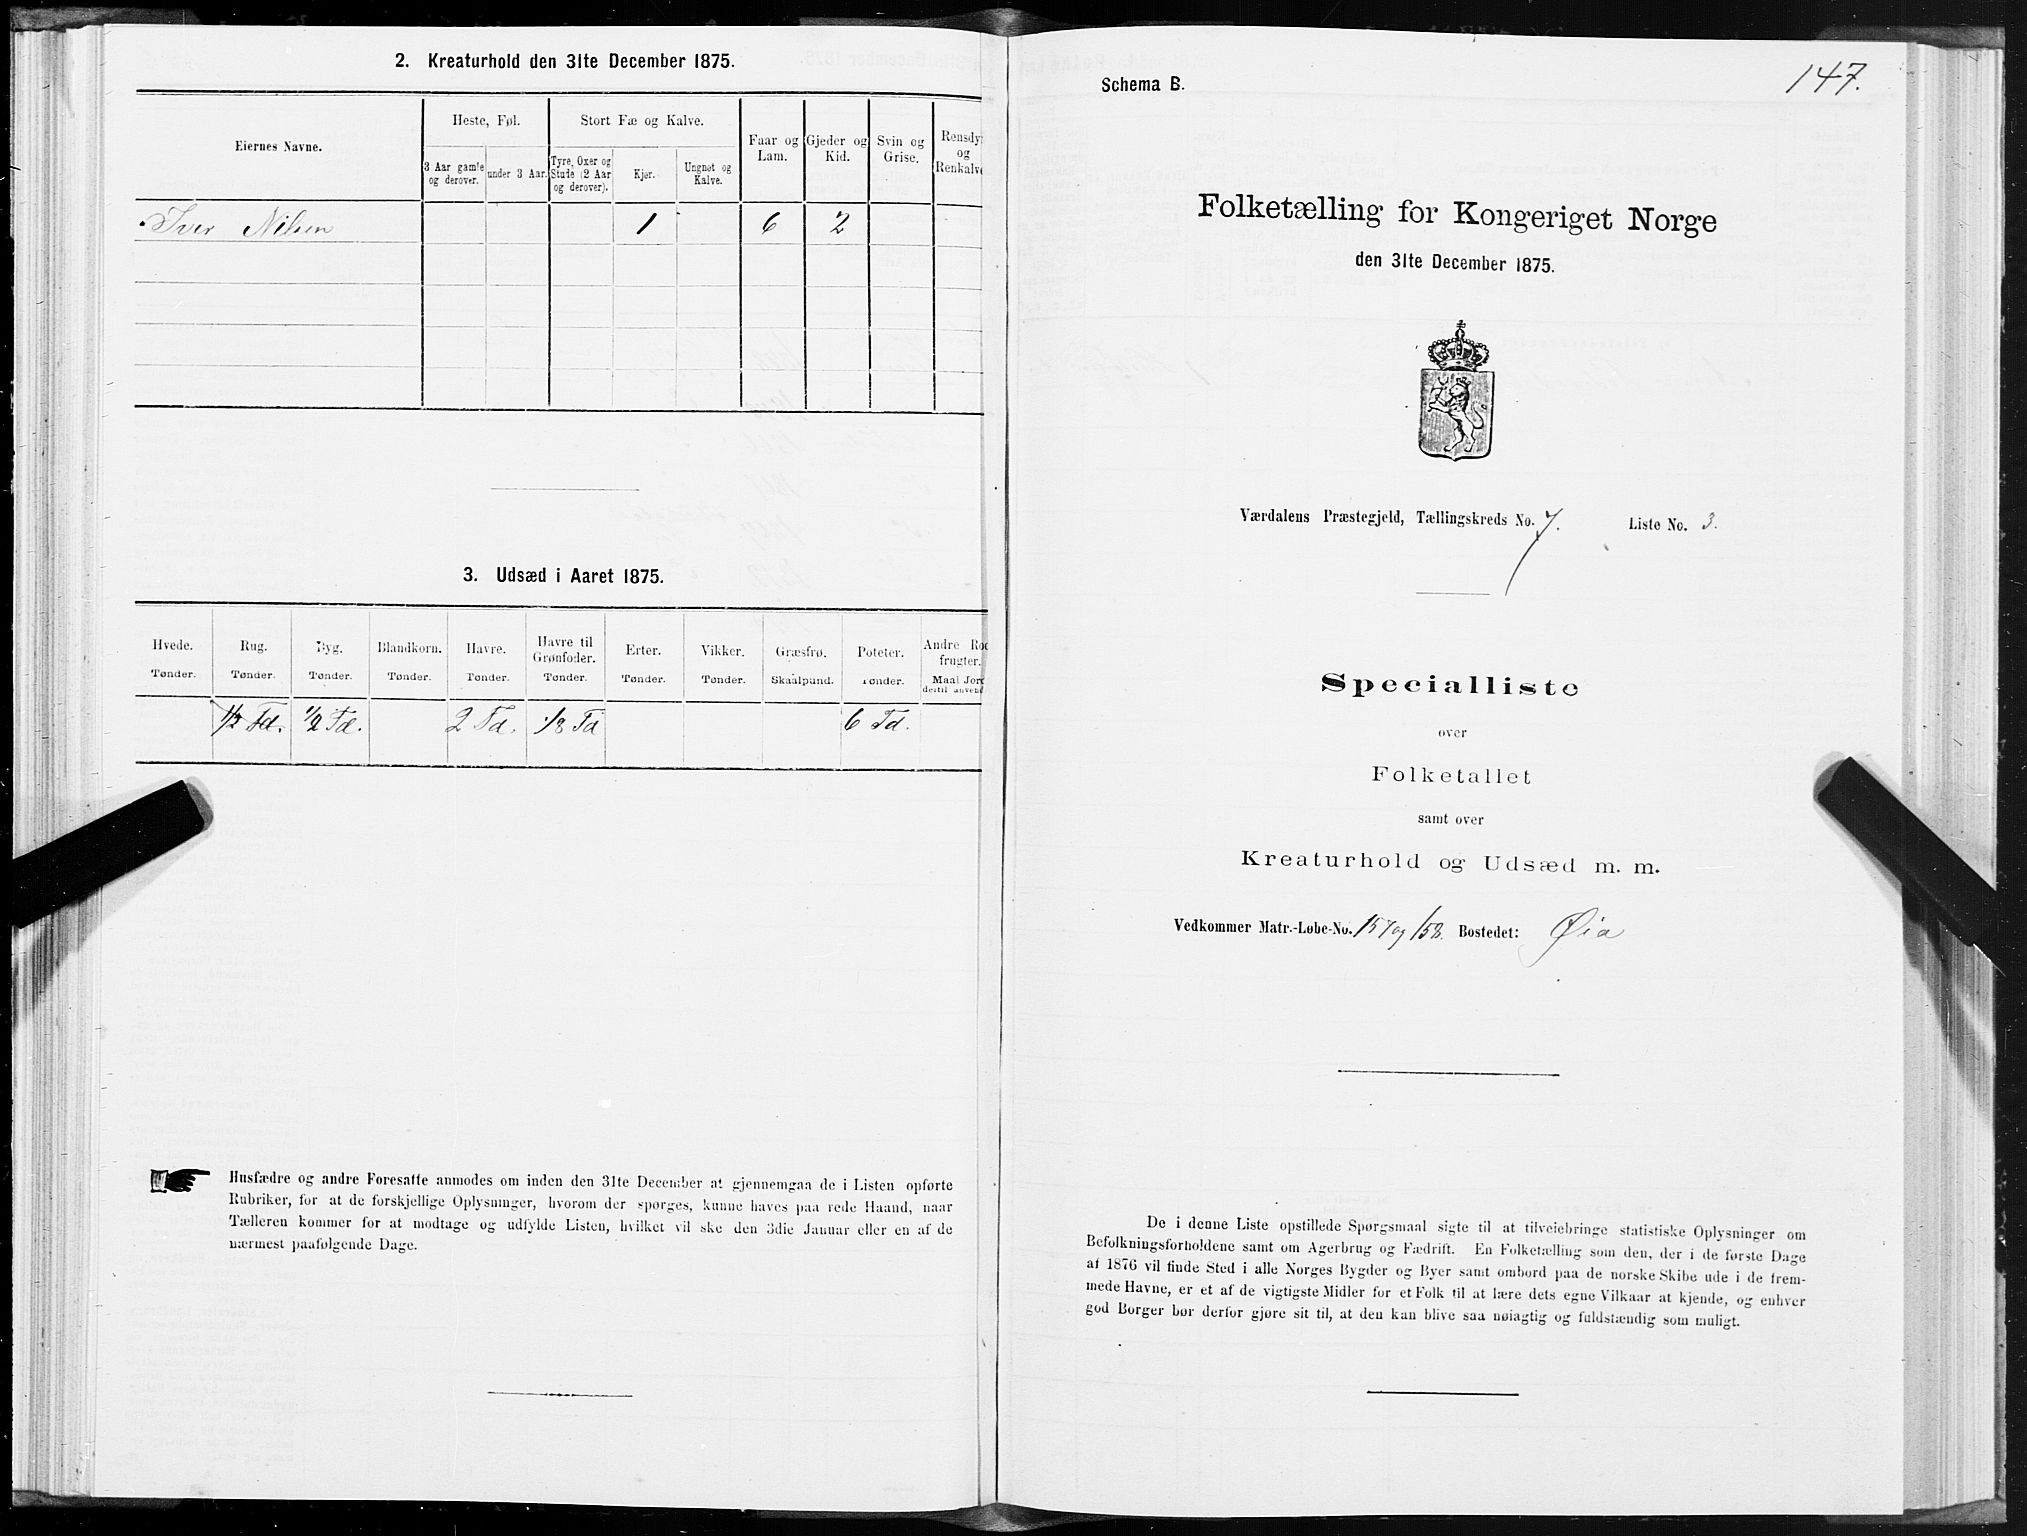 2. Kreaturhold den 31te December 1875.
Eiernes Navne.
Heste, Føl.
Stort Fæ og Kalve.
Faar og Lam.
Gjeder og Kid.
Svin og Grise.
Rensdy
og
Renkalve
3 Aar gamle og derover.
under 3 Aar.
Tyre, Oxer og Stude (2 Aar og derover).
Kjør.
Ungnøt og Kalve.
Iver Nilsen 1 6 2
3. Udsæd i Aaret 1875.
Hvede. Rug. Byg. Blandkorn. Havre. Havre til Grønfoder. Erter. Vikker. Græsfrø. Poteter. Andre Rod frugter.
Tønder. Tønder. Tønder. Tønder. Tønder. Tønder. Tønder. Tønder. Skaalpund. Tønder. Maal Jord dertil anvend
1/2 Td. 1/2 Td. 2 Td. 1/8 Td 6 Td.
Husfædre og andre Foresatte anmodes om inden den 31te December at gjennemgaa de i Listen opførte
Rubriker, for at de forskjellige Oplysninger, hvorom der spørges, kunne haves paa rede Haand, naar
Tælleren kommer for at modtage og udfylde Listen, hvilket vil ske den 3die Januar eller en af de
nærmest paafølgende Dage.
147.
Schema B.
Folketælling for Kongeriget Norge
den 31te December 1875.
Værdalens Præstegjeld, Tællingskreds No. 7. Liste No. 3.
Specialliste
over
Folketallet
samt over
Kreaturhold og Udsæd m. m.
Vedkommer Matr.-Løbe-No. 157 og 158. Bostedet: Øia
De i denne Liste opstillede Spørgsmaal sigte til at tilveiebringe statistiske Oplysninger om
Befolkningsforholdene samt om Agerbrug og Fædrift. En Folketælling som den, der i de første Dage
af 1876 vil finde Sted i alle Norges Bygder og Byer samt ombord paa de norske Skibe ude i de frem-
mede Havne, er et af de vigtigste Midler for et Folk til at lære dets egne Vilkaar at kjende, og enhver
god Borger bør derfor gjøre sit til, at den kan blive saa nøiagtig og fuldstændig som muligt.